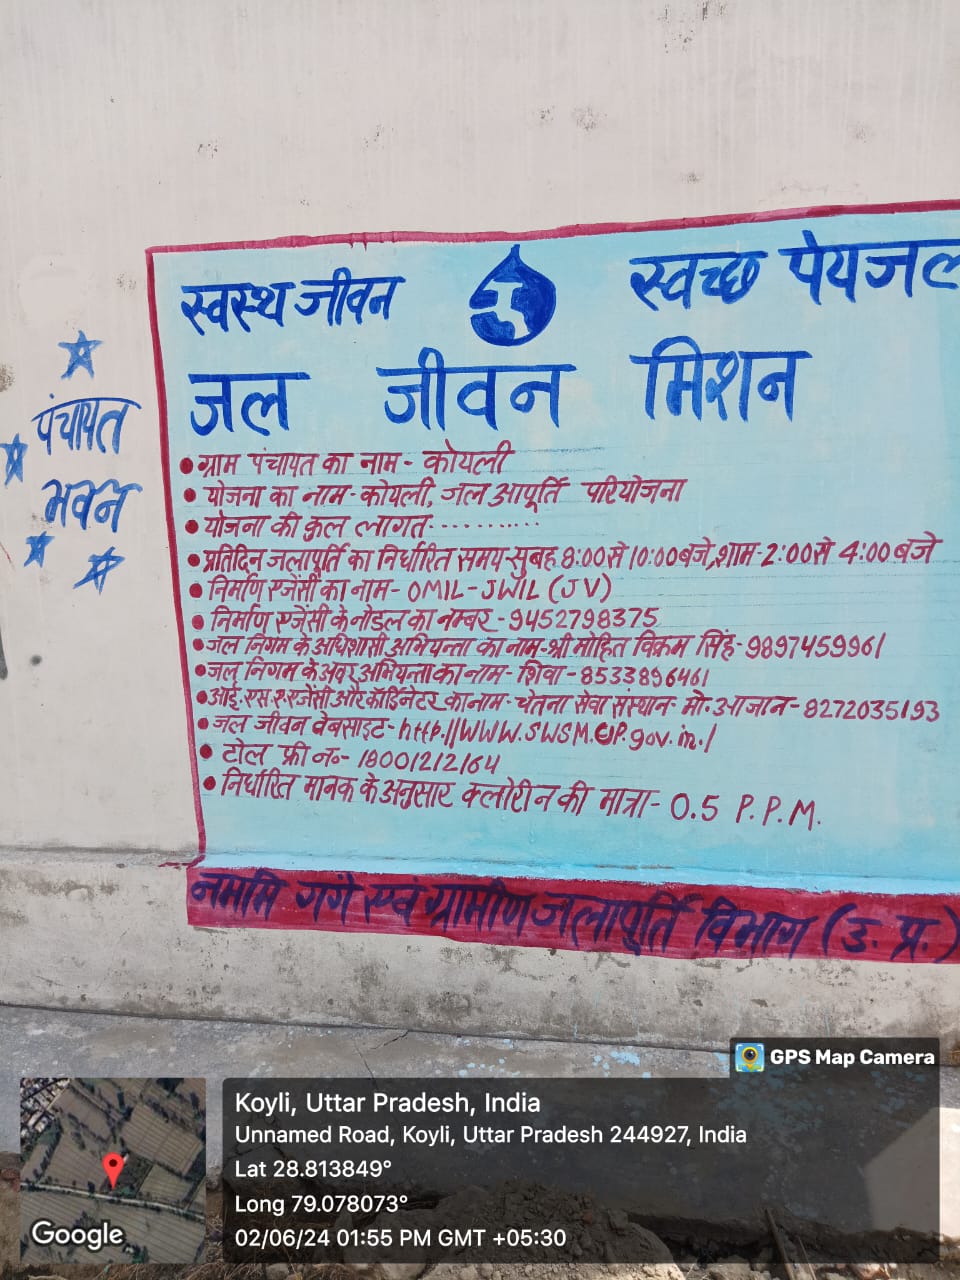 स्वस्थ जीवन स्वच्छ पेयजल
जल जीवन मिशन
पंचायत
भवन
• ग्राम पंचायत का नाम - कोयली
• योजना का नाम - कोयली, जल आपूर्ति परियोजना
• योजना की कुल लागत..........
• प्रतिदिन जलापूर्ति का निर्धारित समय - सुबह 8:00 से 10:00 बजे, शाम - 2:00 से 4:00 बजे
• निर्माण एजेंसी का नाम - OMIL - JWIL (JV)
• निर्माण एजेंसी के नोडल का नम्बर - 9452798375
• जल निगम के अधिशासी अभियन्ता का नाम - श्री मोहित विक्रम सिंह - 9897459961
• जल निगम के अवर अभियन्ता का नाम - शिवा - 8533896461
• आई. एस. ए. एजेंसी और कॉर्डिनेटर का नाम - चेतना सेवा संस्थान - मो. आजान - 8272035193
• जल जीवन वेबसाइट - http.//WWW.SWSM.UP.gov.in./
• टोल फ्री न०- 18001212164
• निर्धारित मानक के अनुसार क्लोरीन की मात्रा - 0.5 P.P.M.
नमामि गंगे एवं ग्रामीण जलापूर्ति विभाग (उ. प्र.)
GPS Map Camera
Koyli, Uttar Pradesh, India
Unnamed Road, Koyli, Uttar Pradesh 244927, India
Lat 28.813849°
Long 79.078073°
02/06/24 01:55 PM GMT +05:30
Google